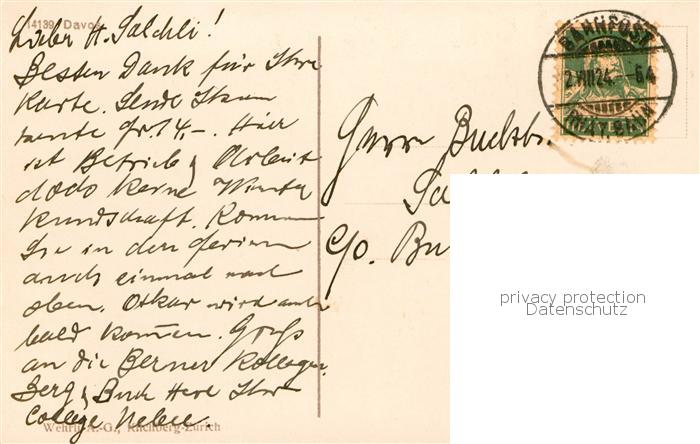 14139 Davos
Lieber H. Salchli!
Besten Dank für Ihre
Karte. Sende Ihnen
heute Fr. 14.-. Hier
ist Betrieb & Arbeit
dodo keine Winter
Kundschaft. Kommen
Sie in den Ferien
auch einmal nach
oben. Oskar wird auch
bald kommen. Gruss
an die Berner Kollegen.
Berg & Buch Herr Ihr
College
Wehrli A.-G., Kilchberg-Zürich
BAHNPOST
2.VIII.24.–64
Herrn Buchb.
Sal
C/o. Bu
privacy protection
Datenschutz